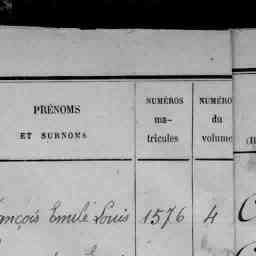 PRÉNOMS
ET SURNOMS
NUMÉROS
ma-
tricules
NUMÉRO
du
volume
ançois Emile Louis 1576 4